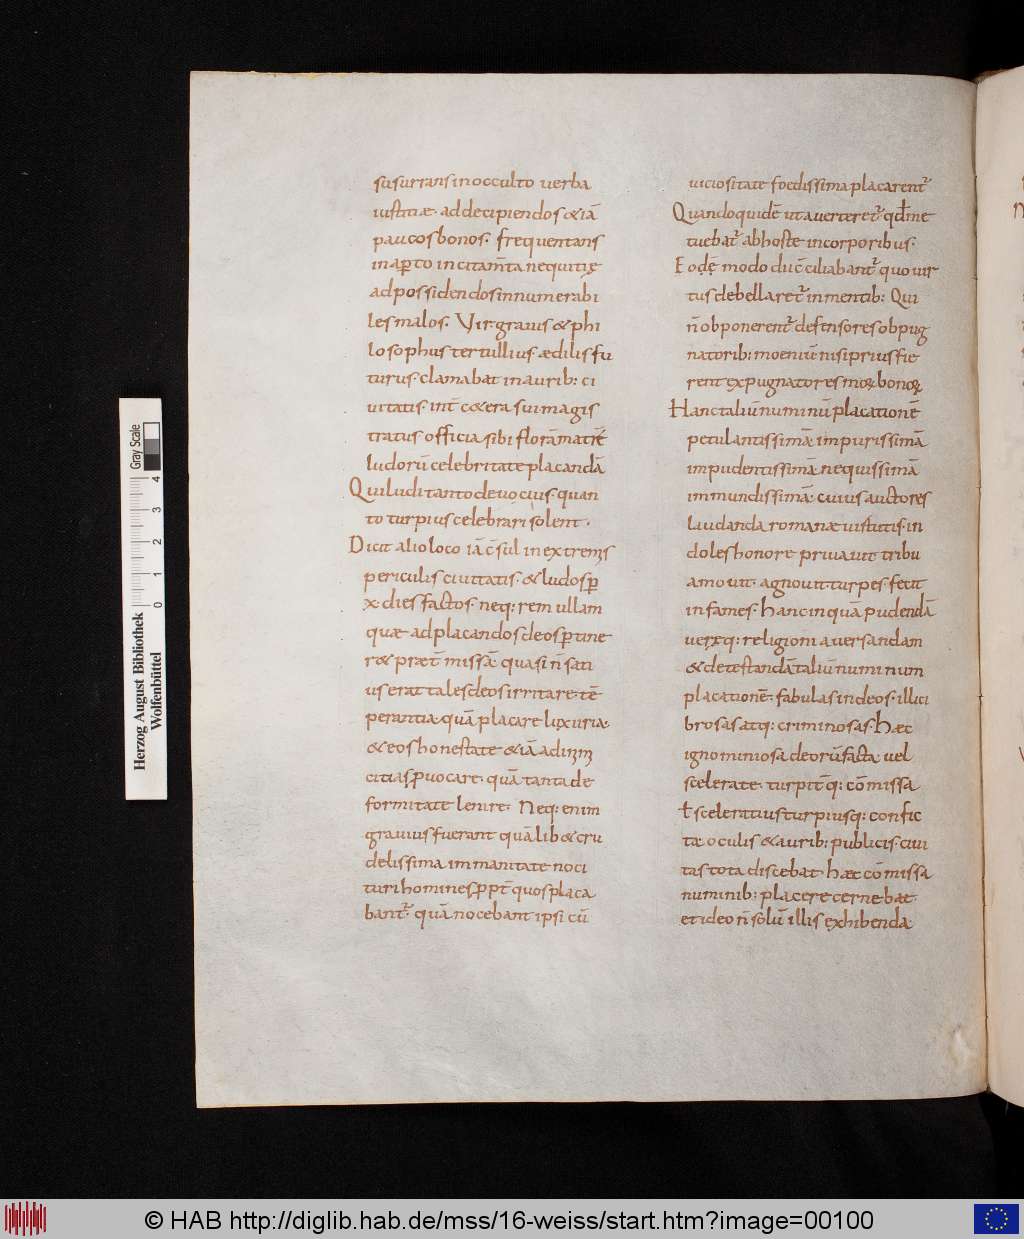 susurrans in occulto uerba
iustitiæ ad decipiendos & iā
paucos bonos. frequentans
in aꝑto incitam̄ta nequitię
ad possidendos innumerabi
les malos. Vir grauis & phi
losophus tertullius ædilis fu
turus. clamabat in aurib: ci
uitatis. int̄ c&era sui magis
tratus officia sibi florā matrē
ludorū celebritate placandā
Qui ludi tanto deuocius. quan
to turpius celebrari solent.
Dicit alio loco iā c̄sul in extremis
periculis ciuitatis. & ludos ꝑ
x. dies factos. neq: rem ullam
quæ ad placandos deos ꝑtine
r& præt̄ missā. quasi n̄ sati
us erat tales deos irritare tē
perantia. quā placare luxuria.
& eos honestate & iā ad inim
citias ꝓuocare. quā tanta de
formitate lenire. Neq: enim
grauius fuerant quālib& cru
delissima immanitate noci
turi homines ꝓpt̄ quos placa
bant᷑. quā nocebant ipsi cū
uiciositate foedissima placarent᷑
Quandoquidē ut auerteret᷑ qđ me
tuebat᷑ ab hoste in corporibus.
Eodē modo dii c̄ciliabant᷑ quo uir
tus debellaret᷑ in mentib: Qui
n̄ obponerent᷑ defensores obpug
natorib: moeniū nisi prius fie
rent expugnatores moꝝ bonoꝝ
Hanc taliū numinū placationē
petulantissimā impurissimā
impudentissimā nequissimā
immundissimā. cuius auctores
laudanda romanæ uistutis in
doles honore priuauit tribu
amouit. agnouit turpes. fecit
infames. hanc inquā pudendā
ueręq: religioni auersandam
& detestandā taliū numinum
placationē. fabulas in deos. illici
brosas atq: criminosas. Hæc
ignominiosa deorū facta uel
scelerate. turpit̄q: cōmissa
ł sceleratius turpiusq: confic
tæ oculis & aurib: publicis. ciui
tas tota discebat hæc cōmissa
numinib: placere cernebat.
et ideo n̄ solū illis exhibenda.
Herzog August Bibliothek
Wolfenbüttel
Gray Scale
0 1 2 3 4
© HAB http://diglib.hab.de/mss/16-weiss/start.htm?image=00100